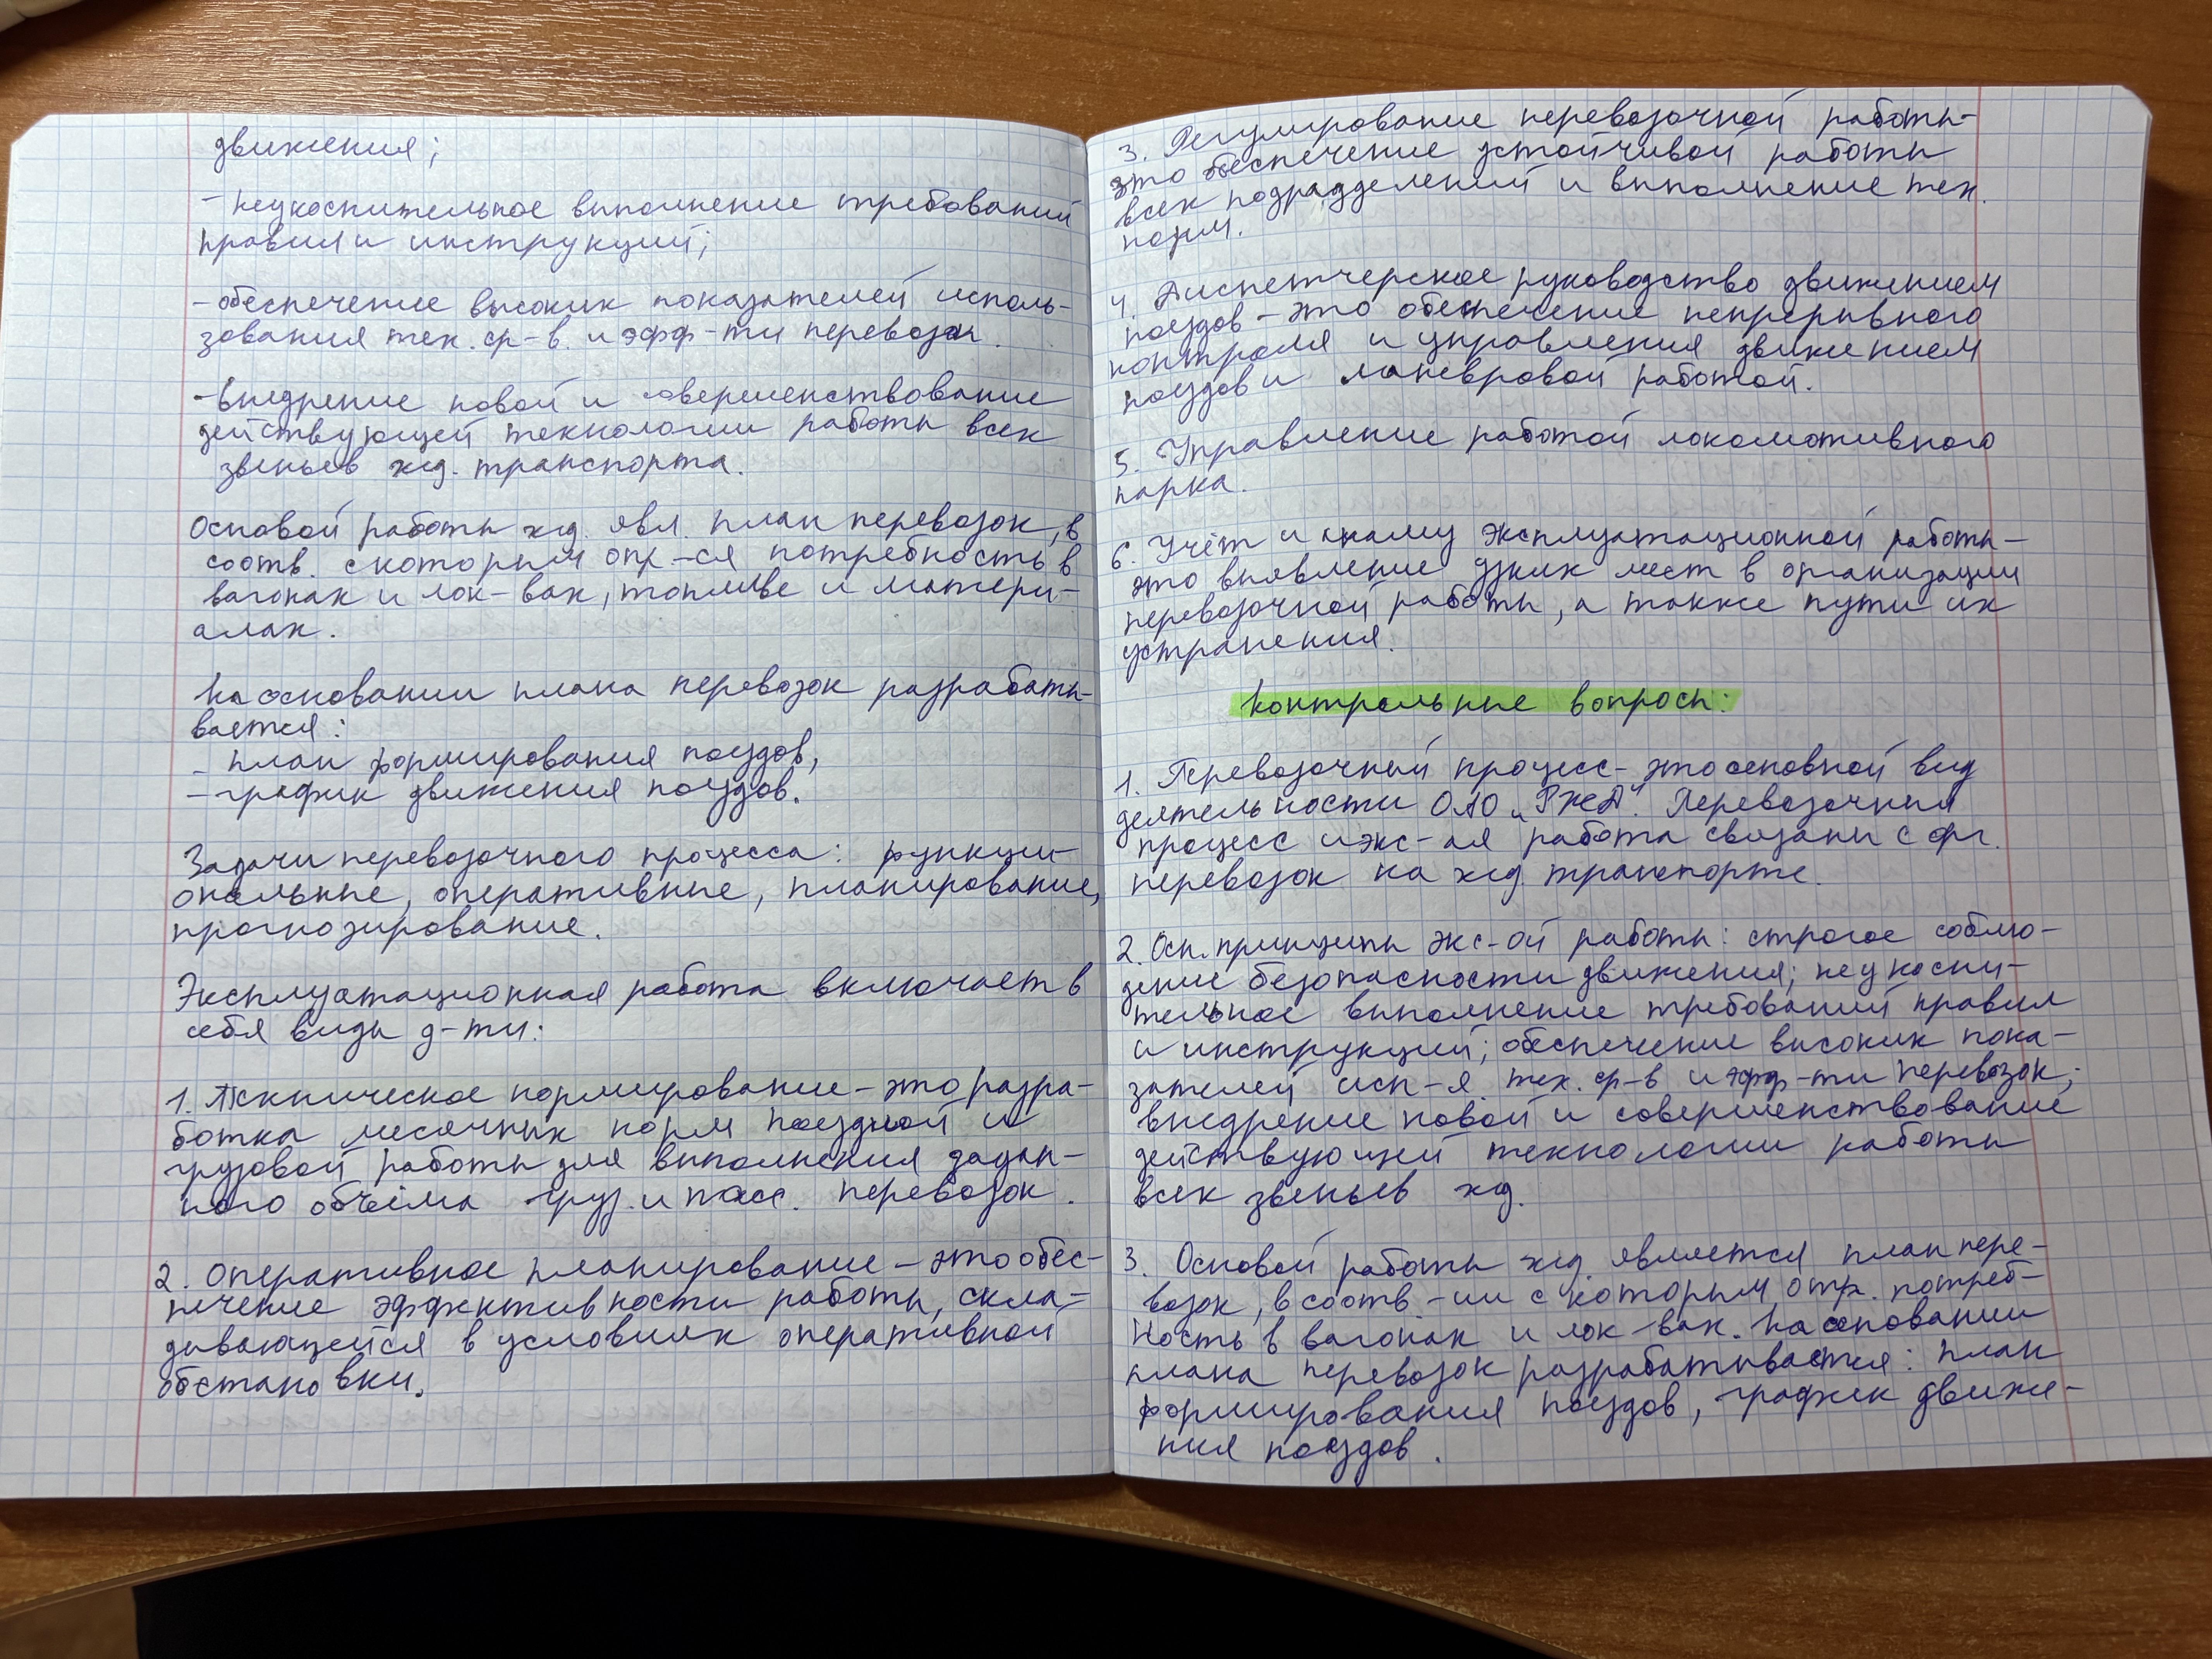 движения;
- неукоснительное выполнение требований
правил и инструкций;
- обеспечение высоких показателей исполь-
зования тех. ср-в. и эфф-ти перевозок.
- внедрение новой и совершенствование
действующей технологии работы всех
звеньев жд. транспорта.
Основой работы жд. явл. план перевозок, в
соотв. с которым опр-ся потребность в
вагонах и лок-вах, топливе и матери-
алах.
На основании плана перевозок разрабаты-
вается:
- план формирования поездов,
- график движения поездов.
Задачи перевозочного процесса: функци-
ональные, оперативные, планирование,
прогнозирование.
Эксплуатационная работа включает в
себя виды д-ти:
1. Техническое нормирование - это разра-
ботка месячных норм поездной и
грузовой работы для выполнения задан-
ного объёма груз. и пасс. перевозок.
2. Оперативное планирование - это обес-
печение эффективности работы, скла-
дывающейся в условиях оперативной
обстановки.
3. Регулирование перевозочной работы-
это обеспечение устойчивой работы
всех подразделений и выполнение тех.
норм.
4. Диспетчерское руководство движением
поездов - это обеспечение непрерывного
контроля и управления движением
поездов и маневровой работой.
5. Управление работой локомотивного
парка.
6. Учёт и анализ эксплуатационной работы -
это выявление узких мест в организации
перевозочной работы, а также пути их
устранения.
Контрольные вопросы:
1. Перевозочный процесс - это основной вид
деятельности ОАО "РЖД". Перевозочный
процесс и экс-ая работа связаны с орг.
перевозок на жд транспорте.
2. Осн. принципы экс-ой работы: строгое соблю-
дение безопасности движения; неукосни-
тельное выполнение требований правил
и инструкций; обеспечение высоких пока-
зателей исп-я тех. ср-в и эфф-ти перевозок;
внедрение новой и совершенствование
действующей технологии работы
всех звеньев жд.
3. Основой работы жд является план пере-
возок, в соотв-ии с которым опр. потреб-
ность в вагонах и лок-вах. На основании
плана перевозок разрабатывается: план
формирования поездов, график движе-
ния поездов.